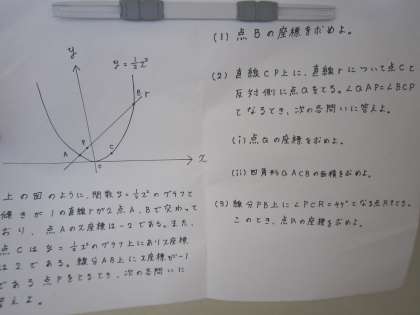 y
y=½x²
B
r
P
A
C
O
x
上の図のように、関数y=½x²のグラフと
傾きが1の直線rが2点A、Bで交わって
おり、点Aのx座標は-2である。また、
点Cはy=½x²のグラフ上にありx座標
は2である。線分AB上にx座標が-1
である点Pをとるとき、次の各問いに
答えよ。
(1) 点Bの座標を求めよ。
(2) 直線CP上に、直線rについて点Cと
反対側に点Qをとる。∠QAP=∠BCP
となるとき、次の各問いに答えよ。
(i) 点Qの座標を求めよ。
(ii) 四角形QACBの面積を求めよ。
(3) 線分PB上に∠PCR=45°となる点Rをとる。
このとき、点Rの座標を求めよ。